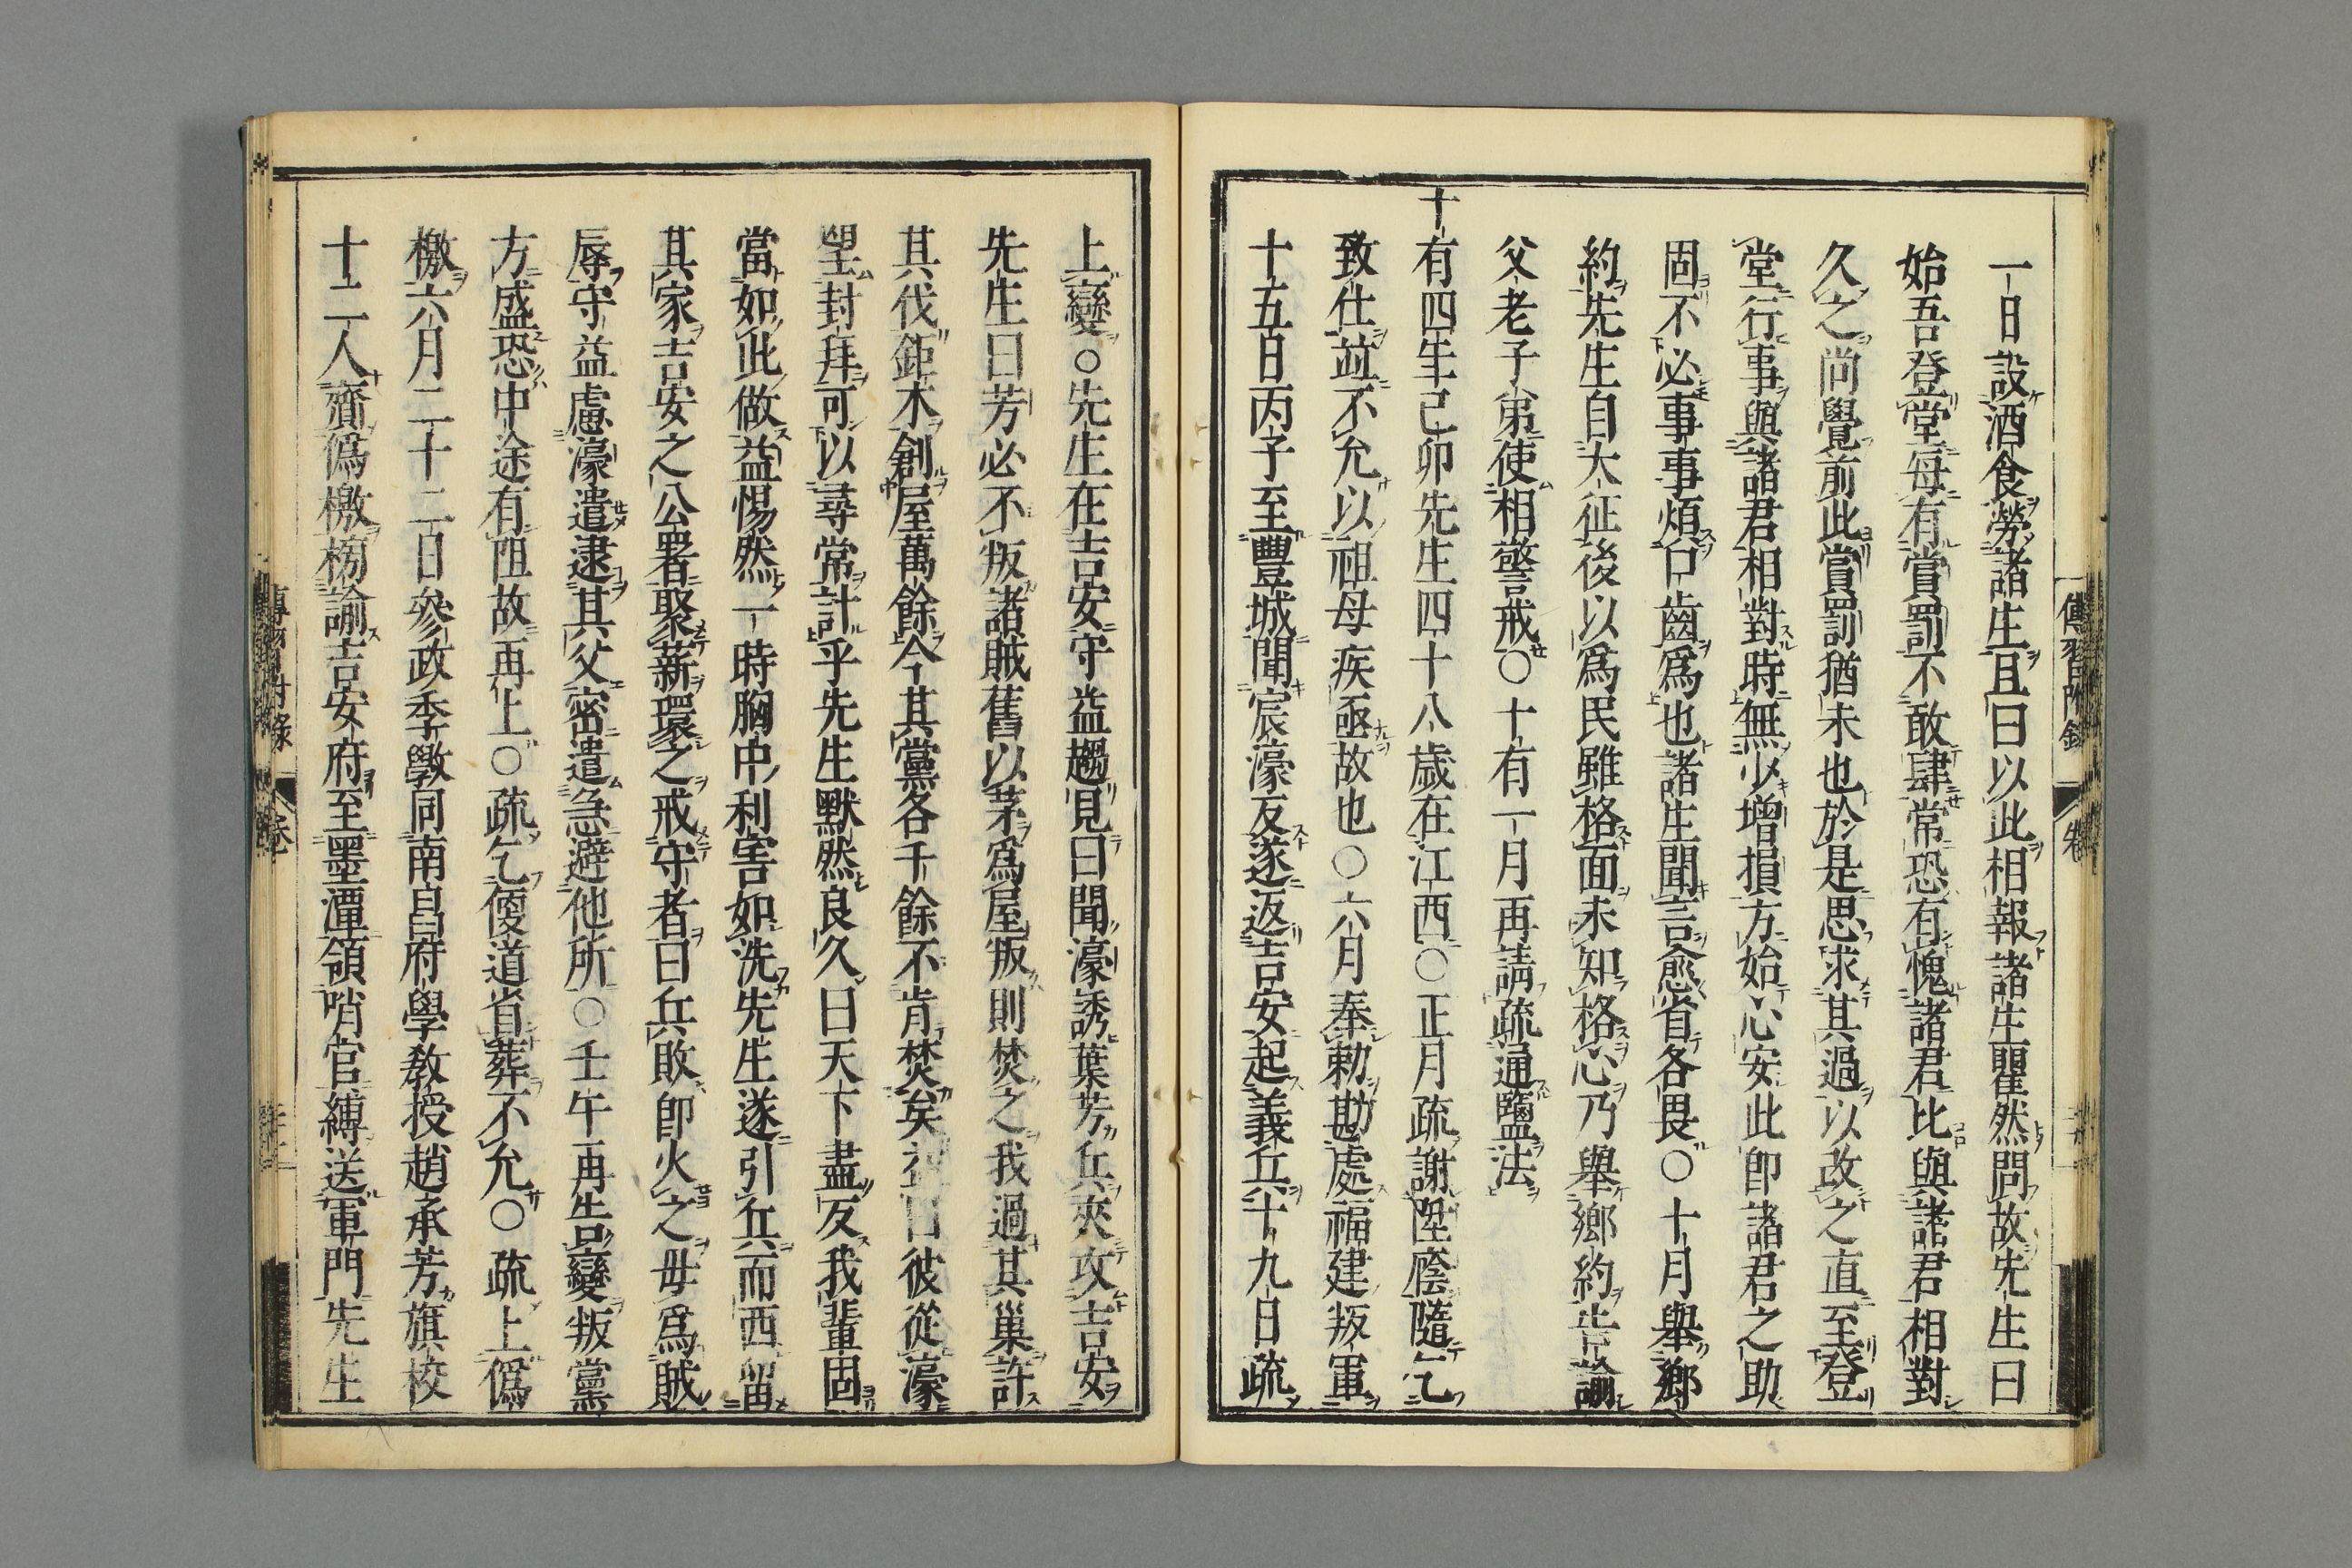 一日設酒食勞諸生且曰以此相報諸生瞿然問故先生曰
始吾登堂每有賞罰不敢肆常恐有愧諸君比與諸君相對
久之尚覺前此賞罰猶未也於是思求其過以改之直至登
堂行事與諸君相對時無少增損方始心安此即諸君之助
固不必事事煩口齒爲也諸生聞言愈省各畏○十月舉鄉
約先生自大征後以爲民雖格面未知格心乃舉鄉約告諭
父老子弟使相警戒○十有一月再請疏通鹽法
十有四年己卯先生四十八歲在江西○正月疏謝陞廕隨乞
致仕並不允以祖母疾亟故也○六月奉勅勘處福建叛軍
十五日丙子至豐城聞宸濠反遂返吉安起義兵十九日疏
上變○先生在吉安守益趨見曰聞濠誘葉芳兵夾攻吉安
先生曰芳必不叛諸賊舊以茅爲屋叛則焚之我過其巢許
其伐鉅木創屋萬餘今其黨各千餘不肯焚矣益曰彼從濠
望封拜可以尋常計乎先生默然良久曰天下盡反我輩固
當如此做益惕然一時胸中利害如洗先生遂引兵而西留
其家吉安之公署聚薪環之戒守者曰兵敗即火之毋爲賊
辱守益慮濠遣逮其父密遣急避他所○壬午再告變叛黨
方盛恐中途有阻故再上○疏乞便道省葬不允○疏上僞
檄六月二十二日參政季斆同南昌府學教授趙承芳旗校
十二人齎僞檄榜諭吉安府至墨潭領哨官縛送軍門先生
傳習附錄
卷
傳習附錄
卷